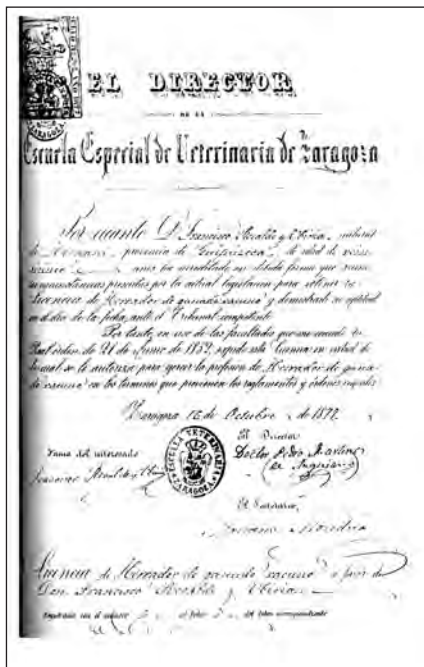 EL DIRECTOR
DE LA
Escuela Especial de Veterinaria de Zaragoza
Por cuanto D. Francisco Recalde y natural
de Hernani, provincia de Guipúzcoa, de edad de veinte
y cinco años ha acreditado en debida forma que reune
circunstancias prevenidas por la actual legislacion para obtener la
Licencia de Herrador de ganado vacuno y demostrado su aptitud
en el dia de la fecha, ante el Tribunal competente
Por tanto, en uso de las facultades que me concede la
Real órden de 21 de Junio de 1852, expido esta licencia en virtud de
la cual se le autoriza para ejercer la profesion de Herrador de gana
do vacuno en los términos que previenen los reglamentos y órdenes vigentes
Zaragoza 16 de Octubre de 1877.
El Director
Firma del interesado
Doctor Pedro Martinez
de Anguiano
Francisco
ESCUELA VETERINARIA
ZARAGOZA
El Secretario,
Mariano Mondria
Licencia de Herrador de ganado vacuno a favor de
Don Francisco Recalde y
Registrado con el número al folio del libro correspondiente